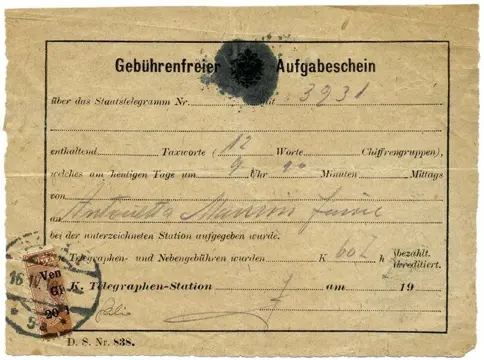 Gebührenfreier Aufgabeschein
über das Staatstelegramm Nr. mit 3931
enthaltend Taxworte (12 Worte Chiffrengruppen),
welches am heutigen Tage um 9 Uhr Minuten Mittags
von
an Antonietta
bei der unterzeichneten Station aufgegeben wurde.
Telegraphen- und Nebengebühren wurden K 602 h bezahlt.
kreditiert.
K. Telegraphen-Station 7 am 19
Ven
Gi
20
16 IV
5
D. S. Nr. 838.